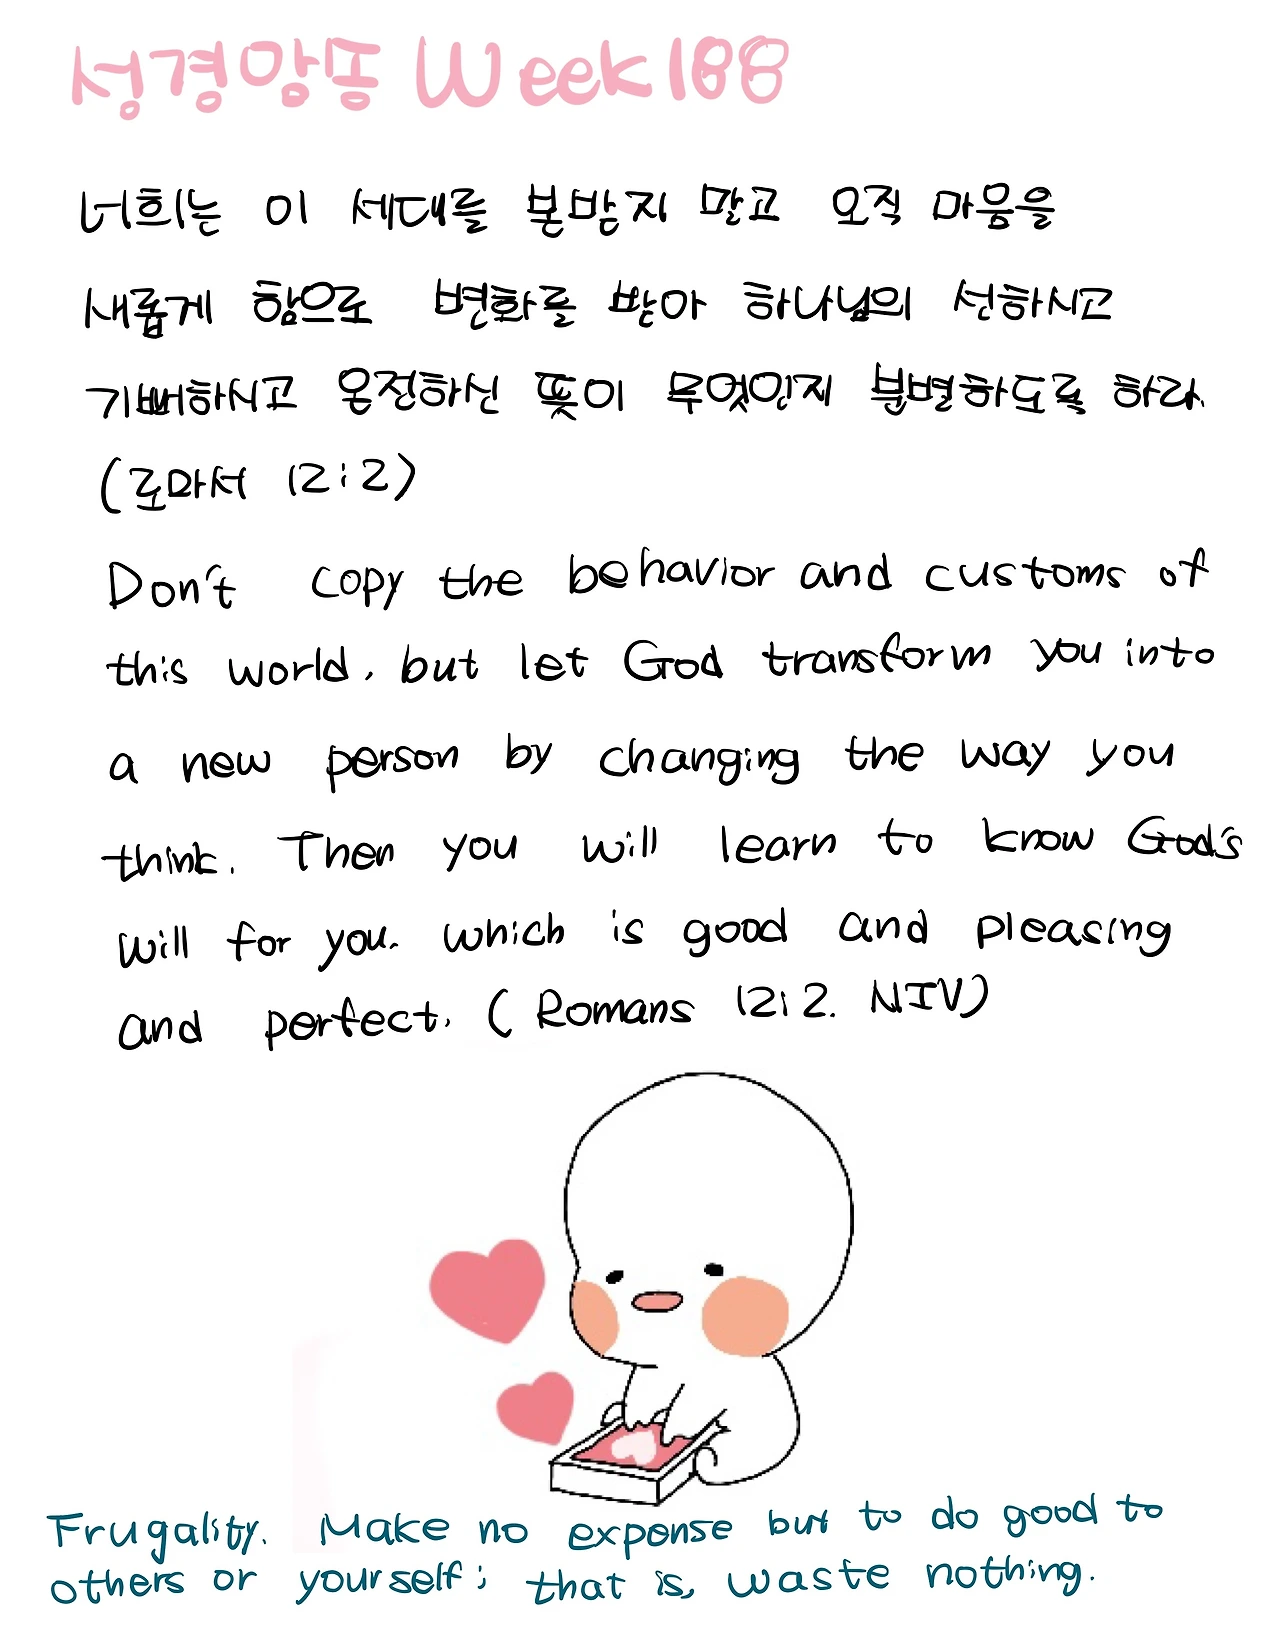 성경암송 Week 188
너희는 이 세대를 본받지 말고 오직 마음을
새롭게 함으로 변화를 받아 하나님의 선하시고
기뻐하시고 온전하신 뜻이 무엇인지 분별하도록 하라.
(로마서 12:2)
Don't copy the behavior and customs of
this world, but let God transform you into
a new person by changing the way you
think. Then you will learn to know God's
will for you. which is good and pleasing
and perfect. (Romans 12:2. NIV)
Frugality. Make no expense but to do good to
others or yourself; that is, waste nothing.